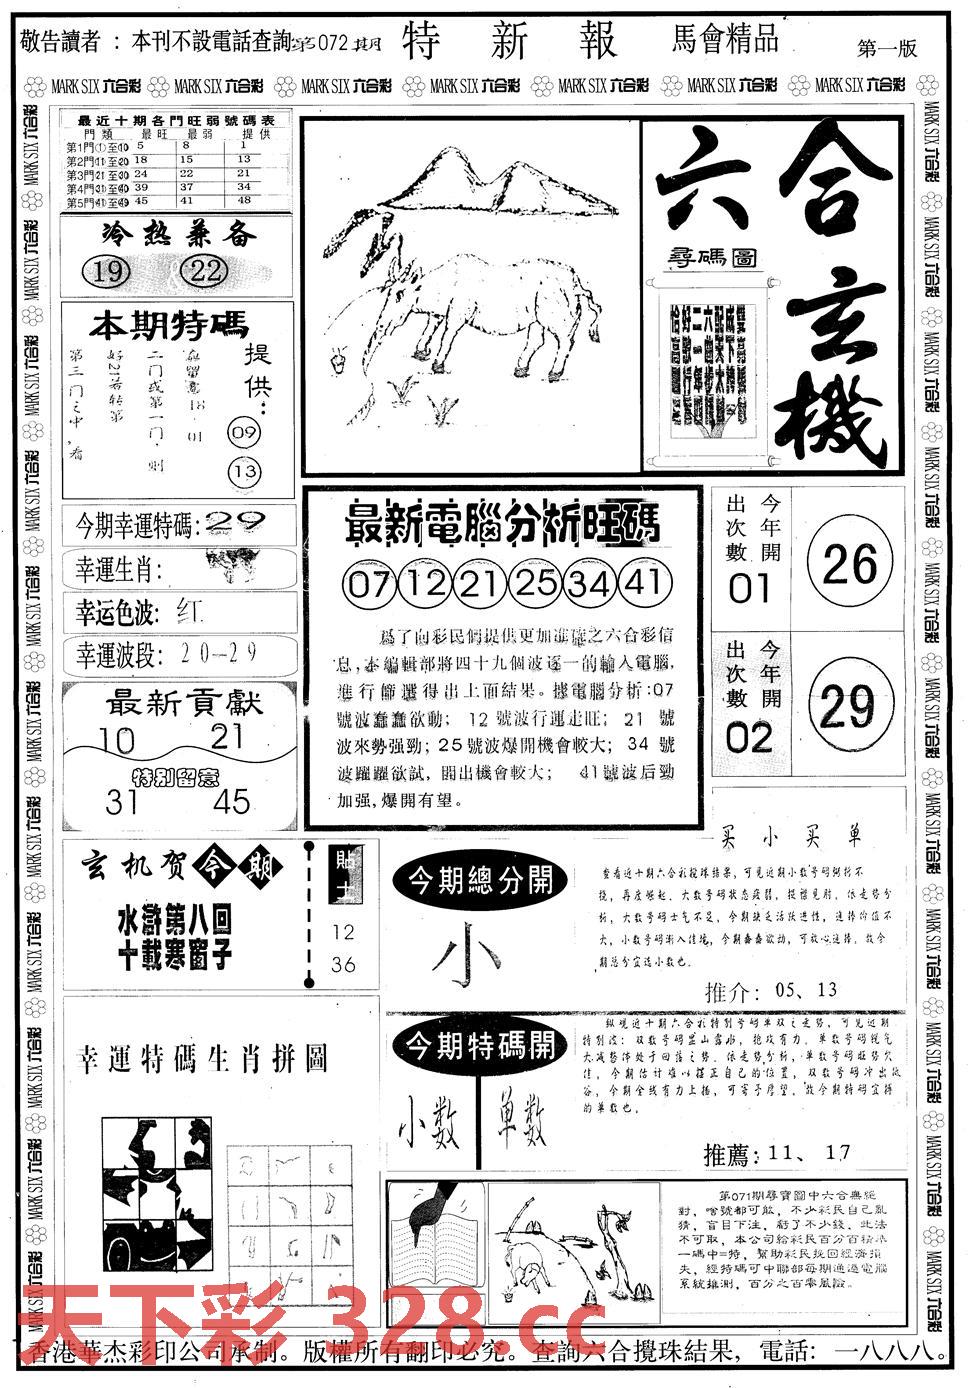 敬告讀者：本刊不設電話查詢 第072期 特新報 馬會精品 第一版
MARK SIX 六合彩 MARK SIX 六合彩 MARK SIX 六合彩 MARK SIX 六合彩 MARK SIX 六合彩 MARK SIX 六合彩 MARK SIX 六合彩
最近十期各門旺弱號碼表
門類 最旺 最弱 提供
第1門①至10 5 8 1
第2門11至20 18 15 13
第3門21至30 24 22 21
第4門31至40 39 37 34
第5門41至49 45 41 48
冷热兼备
19 22
本期特碼
提供：
09
13
第三门之中，看
二门或第一门．则
今期幸運特碼：29
幸運生肖：
幸运色波：红
幸運波段：20—29
最新貢獻
10 21
特别留意
31 45
六合玄機
尋碼圖
最新電腦分析旺碼
07 12 21 25 34 41
爲了向彩民們提供更加准確之六合彩信
息，本編輯部將四十九個波逐一的輸入電腦，
進行篩選得出上面結果。據電腦分析：07
號波蠢蠢欲動；12號波行運走旺；21號
波來勢强勁；25號波爆開機會較大；34號
波躍躍欲試，開出機會較大；41號波后勁
加强，爆開有望。
今年開出次數 01
26
今年開出次數 02
29
玄机贺今期
水滸第八回
十載寒窗子
貼士
12
36
今期總分開
小
买小买单
查看近十期六合彩搅珠结果，可见近期小数号码倒折不
挠，再度崛起，大数号码状态疲弱，提襟见肘，依走势分
析，大数号码士气不足，今期缺乏活跃进性，连捧价值不
大，小数号码渐入佳境，今期蠢蠢欲动，可放心连捧，故今
期总分宜选小数也。
推介：05、13
今期特碼開
小数 单数
纵观近十期六合彩特别号码单双之走势，可见近期
特别波：双数号码累山露水，抢攻有力，单数号码锐气
大减势体处于回落之势，依走势分析，单数号码旺势欠
佳，今期估计难以摆正自己的位置，双数号码冲出低
谷，今期全线有力上扬，可寄予厚望，故今期特码宜择
的单数也。
推薦：11、17
幸運特碼生肖拼圖
第071期尋寶圖中六合無絕
對，啥號都可能，不少彩民自己亂
猜，盲目下注，虧了不少錢，此法
不可取，本公司給彩民百分百精准
一碼中=特，幫助彩民挽回經濟損
失，經特碼可中聯部每期通過電腦
系統推測，百分之百零風險。
天下彩 328.cc
香港華杰彩印公司承制。版權所有翻印必究。查詢六合攪珠結果，電話：一八八八。